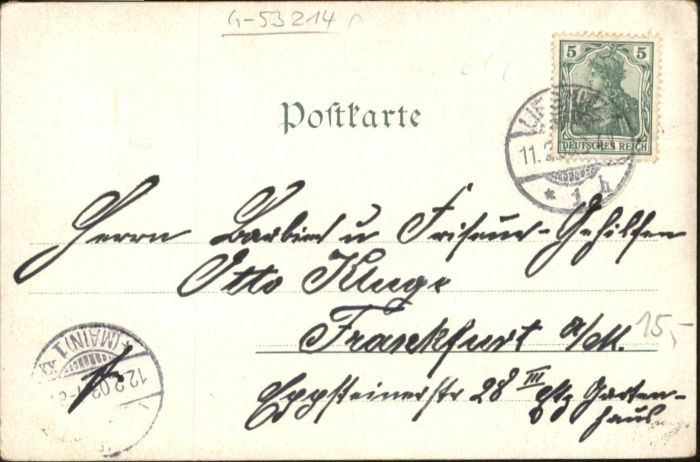 G-53214
5 5
DEUTSCHES REICH
Postkarte
11.2.
* 1 h
Herrn Barbier u Friseur-Gehilfen
Otto Kluge
Frankfurt a/M.
15,-
Eppsteinerstr 28 III Garten-
haus
(MAIN) 1
12.2.03